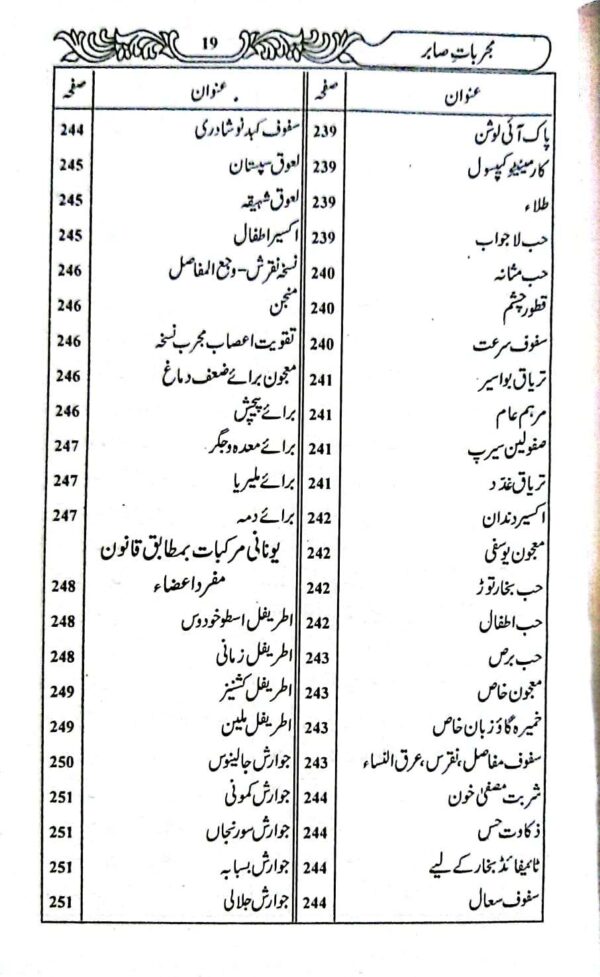 مجربات صابر
19
عنوان صفحہ
پاک آئی لوشن 239
کارمینیٹو کیپسول 239
طلاء 239
حب لاجواب 239
حب مثانہ 240
قطور چشم 240
سفوف سرعت 240
تریاق بواسیر 241
مرہم عام 241
صفولین سیرپ 241
تریاق غدد 241
اکسیر دندان 242
معجون یوسفی 242
حب بخار توڑ 242
حب اطفال 242
حب برص 243
معجون خاص 243
خمیرہ گاؤ زبان خاص 243
سفوف مفاصل، نقرس، عرق النساء 243
شربت مصفیٰ خون 244
ذکاوت حس 244
ٹائیفائڈ بخار کے لیے 244
سفوف سعال 244
عنوان صفحہ
سفوف کبد نوشادری 244
لعوق سپستان 245
لعوق شہیقہ 245
اکسیر اطفال 245
نسخہ نقرش - وجع المفاصل 246
منجن 246
تقویت اعصاب مجرب نسخہ 246
معجون برائے ضعف دماغ 246
برائے پیچش 246
برائے معدہ وجگر 247
برائے ملیریا 247
برائے دمہ 247
یونانی مرکبات بمطابق قانون
مفرد اعضاء 248
اطریفل اسطوخودوس 248
اطریفل زمانی 248
اطریفل کشنیز 249
اطریفل ملین 249
جوارش جالینوس 250
جوارش کمونی 251
جوارش سورنجاں 251
جوارش بسباسہ 251
جوارش جلالی 251